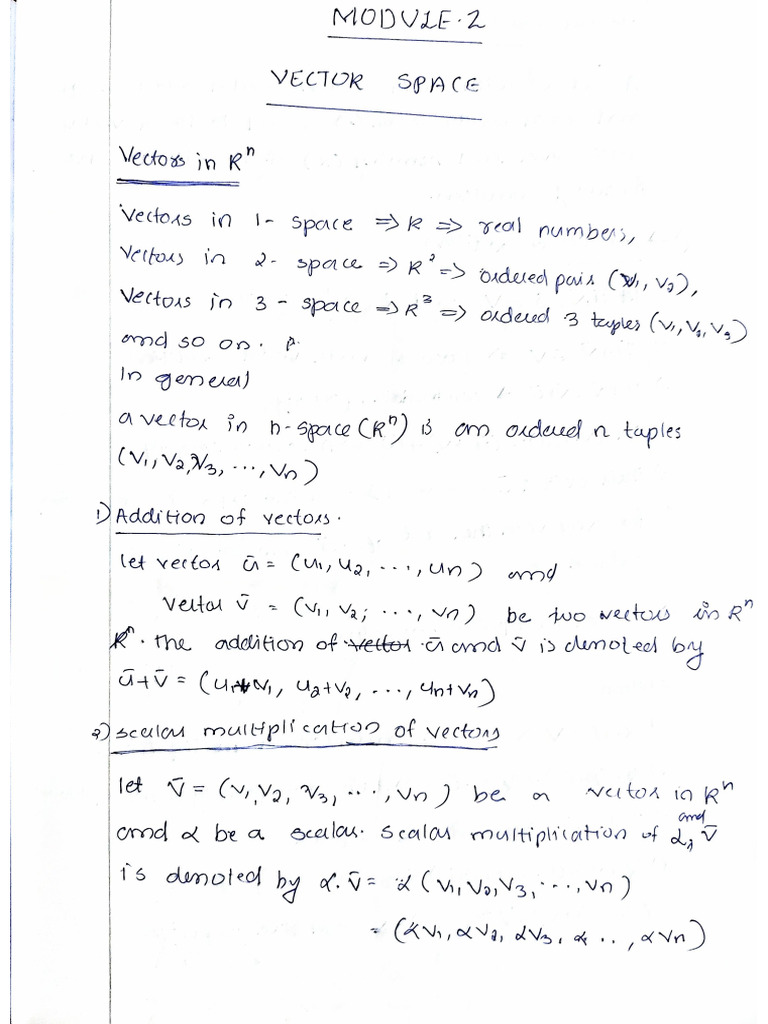 MODULE-2
VECTOR SPACE
Vectors in Rⁿ
Vectors in 1- space ⇒ R ⇒ real numbers,
Vectors in 2- space ⇒ R² ⇒ ordered pair (v₁, v₂),
Vectors in 3- space ⇒ R³ ⇒ ordered 3 tuples (v₁, v₂, v₃)
and so on.
In general
a vector in n-space (Rⁿ) is an ordered n tuples
(v₁, v₂, v₃, ..., vₙ)
1) Addition of vectors.
let vector ū = (u₁, u₂, ..., uₙ) and
vector v̄ = (v₁, v₂, ..., vₙ) be two vectors in Rⁿ
Rⁿ. the addition of vector ū and v̄ is denoted by
ū+v̄ = (u₁+v₁, u₂+v₂, ..., uₙ+vₙ)
2) scalar multiplication of vectors
let v̄ = (v₁, v₂, v₃, ..., vₙ) be a vector in Rⁿ
and α be a scalar. scalar multiplication of α, and v̄
is denoted by α.v̄ = α (v₁, v₂, v₃, ..., vₙ)
= (αv₁, αv₂, αv₃, α..., αvₙ)